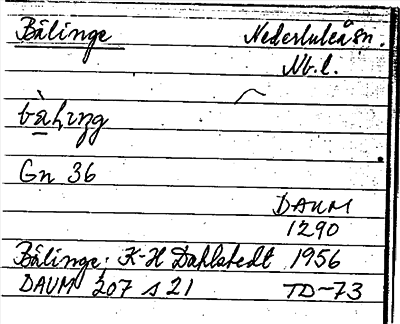 Bälinge Nederluleå sn.
Nb. l.
Gn 36
DAUM
1290
Bälinge. K-H Dahlstedt 1956
DAUM 207 s 21 TD-73